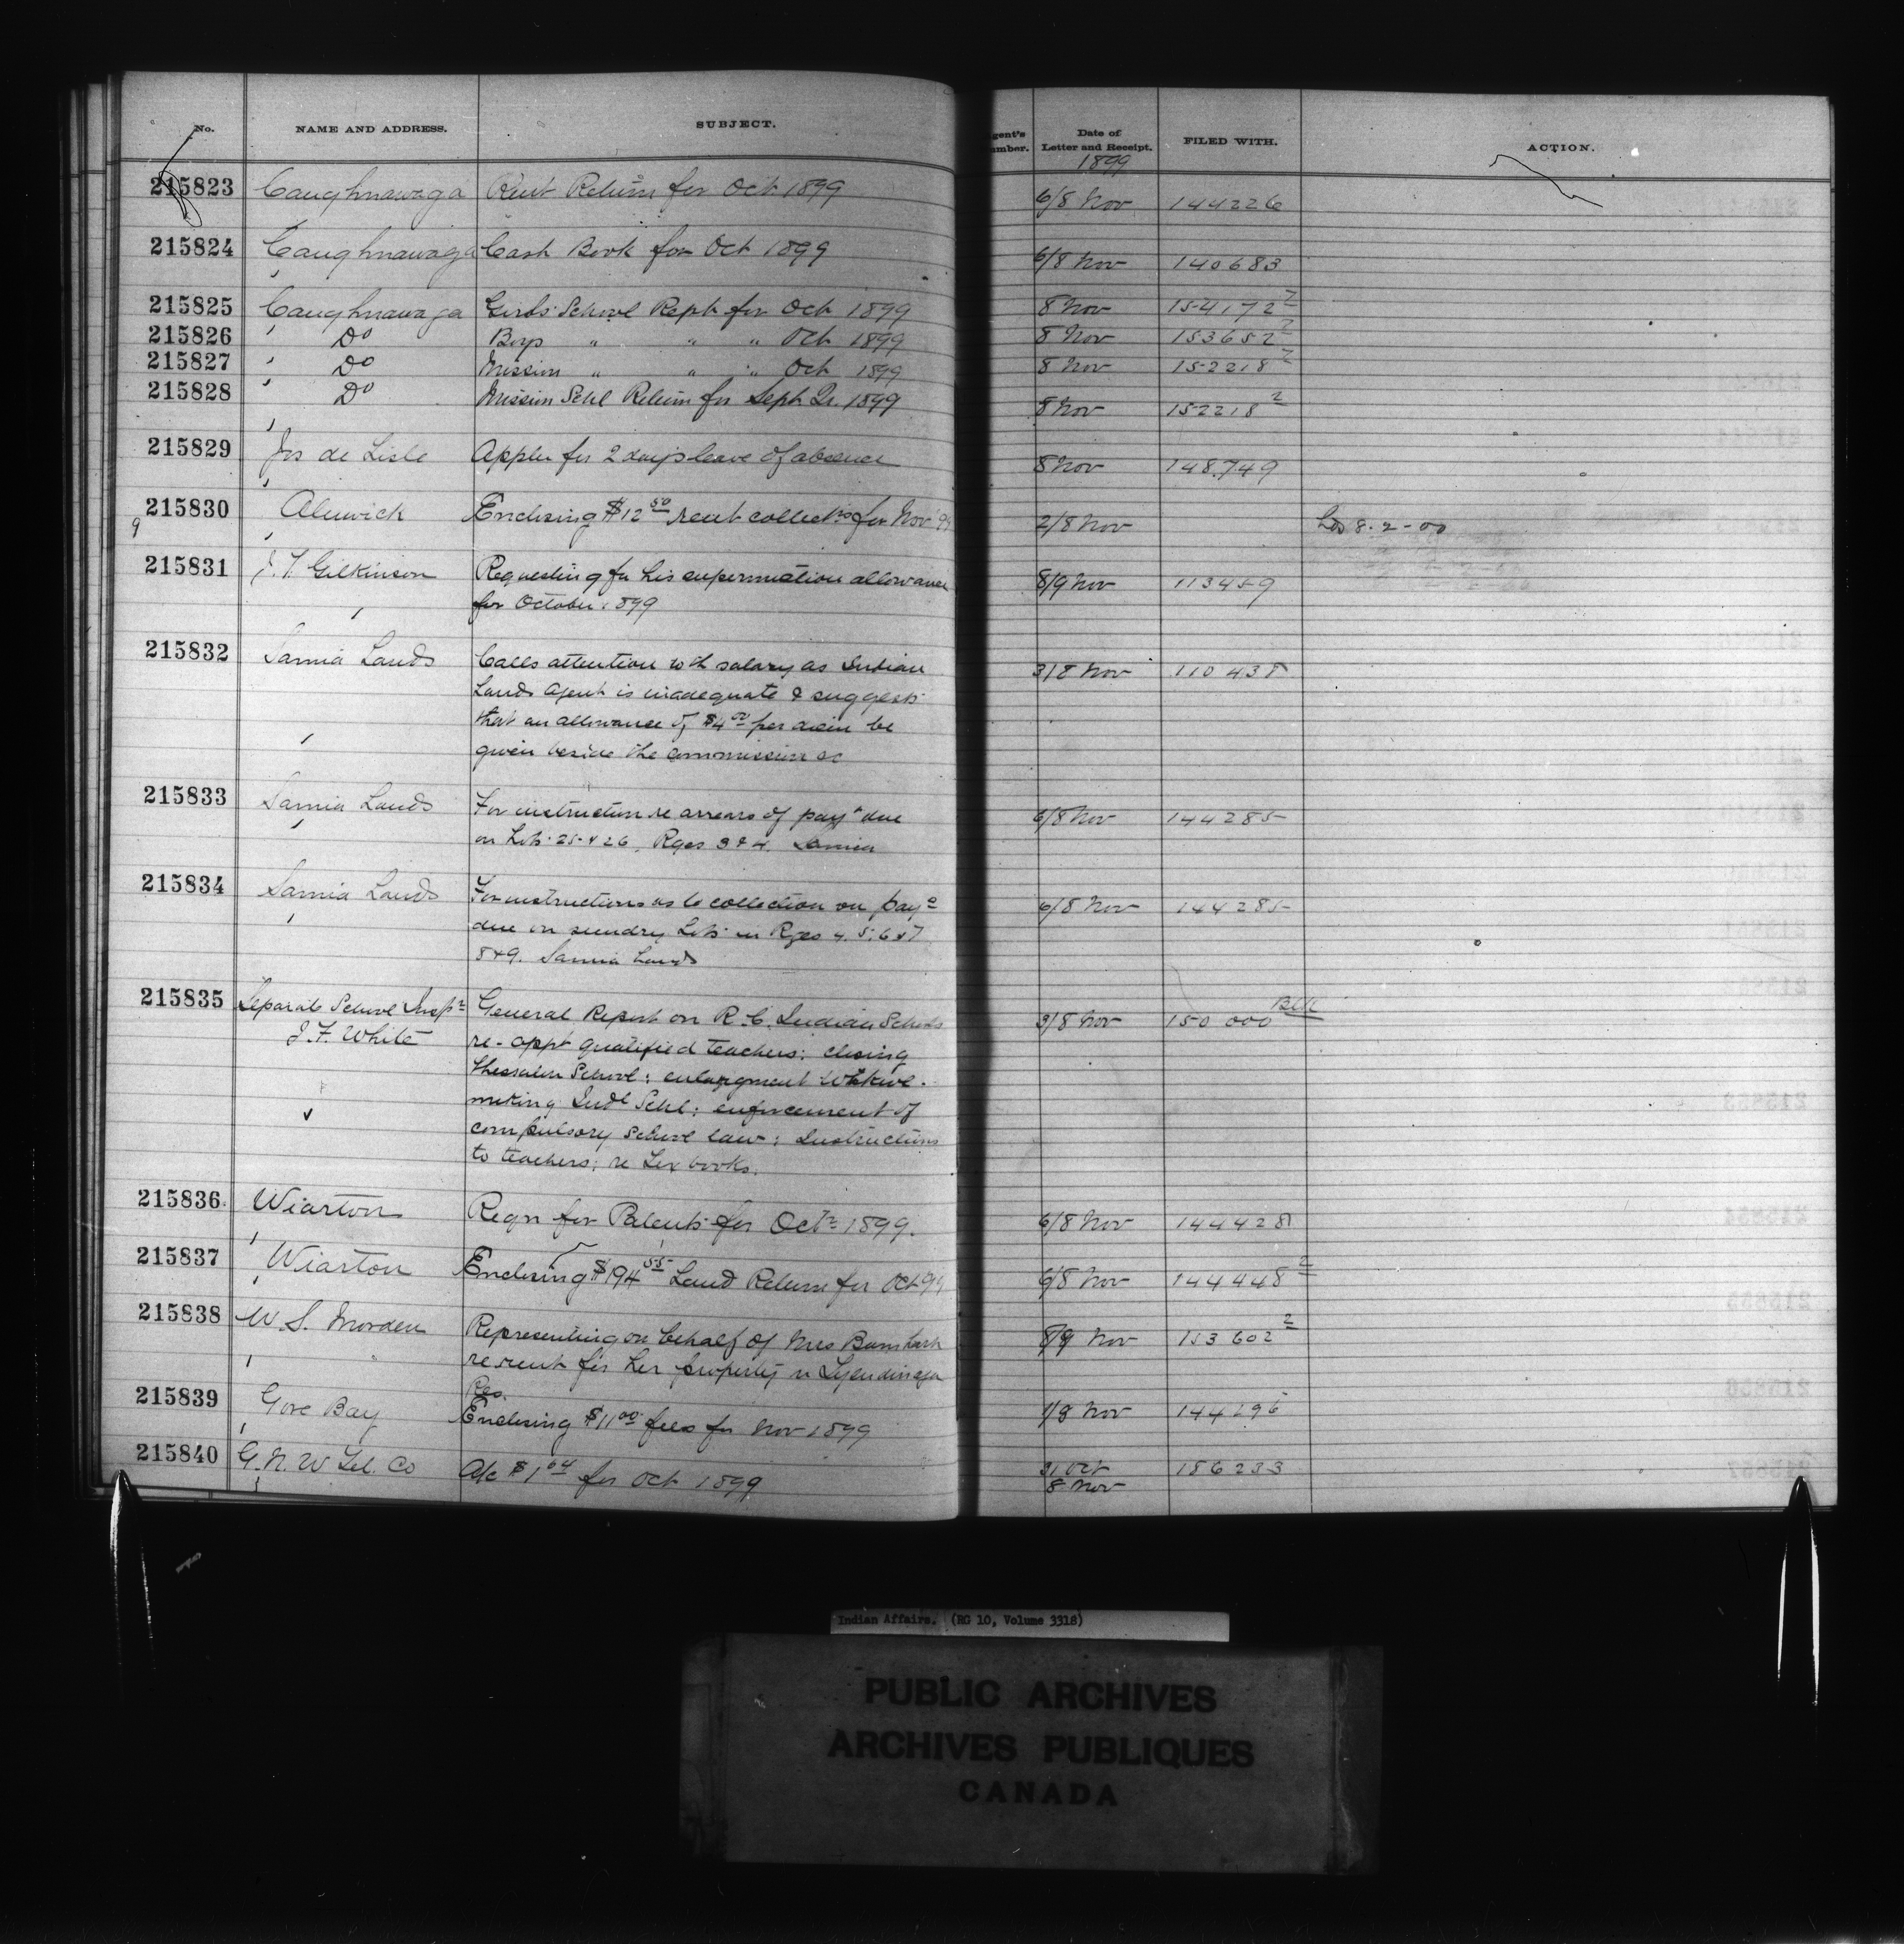 No. NAME AND ADDRESS. SUBJECT. Date of Letter and Receipt. FILED WITH. ACTION.
1899
215823 Caughnawaga Rent Return for Oct 1899 6/8 Nov 144226
215824 Caughnawaga Cash Book for Oct 1899 6/8 Nov 140683
215825 Caughnawaga Girls School Rept for Oct 1899 8 Nov 154,172 2
215826 Do Boys " " " Oct 1899 8 Nov 153652 2
215827 Do Mission " " " Oct 1899 8 Nov 152218 2
215828 Do Mission Schl Return for Sept Qr. 1899 8 Nov 152218 2
215829 Jos de Lisle Appln for 2 days leave of absence 8 Nov 148.749
215830 Alnwick Enclosing $12 50 rent collectns for Nov 99 2/8 Nov 8-2-00
9
215831 J. T. Gilkinson Requesting for his superannuation allowance 8/9 Nov 113459
for October 1899
215832 Sarnia Lands Calls attention salary as Indian 3/8 Nov 110438
Lands Agent is inadequate & suggests
that an allowance of $4 00 per diem be
given beside the commission &c
215833 Sarnia Lands For instruction re arrears of paymts due 6/8 Nov 144285
on Lots 25 & 26, Rges 3 & 4. Sarnia
215834 Sarnia Lands For instructions as to collection on due 6/8 Nov 144285
due on sundry Lots in Rges 4. 5. 6 & 7
8 & 9. Sarnia Lands
215835 Separate School Inspr General Report on R.C. Indian Schools 3/8 Nov 150 000
J. F. White re-appt qualified teachers: closing
Thessalon School: enlargment Wikwe-
mikong Indl Schl: enforcement of
compulsory School law: Instructions
to teachers: re Tex books.
215836 Wiarton Reqn for Patents for Octr 1899. 6/8 Nov 144428
215837 Wiarton Enclosing $194 55 Land Return for Oct 99 6/8 Nov 144448 2
215838 W. S. Morden Representing on behalf of Mrs Barnhart 8/9 Nov 153602 2
re rent for her property in Tyendinaga
Res.
215839 Gore Bay Enclosing $11 00 fees for Nov 1899 1/8 Nov 144296
215840 G. N. W Tel. Co A/c $1 04 for Oct 1899 31 Oct 186233
8 Nov
Indian Affairs. (RG 10, Volume 3318)
PUBLIC ARCHIVES
ARCHIVES PUBLIQUES
CANADA